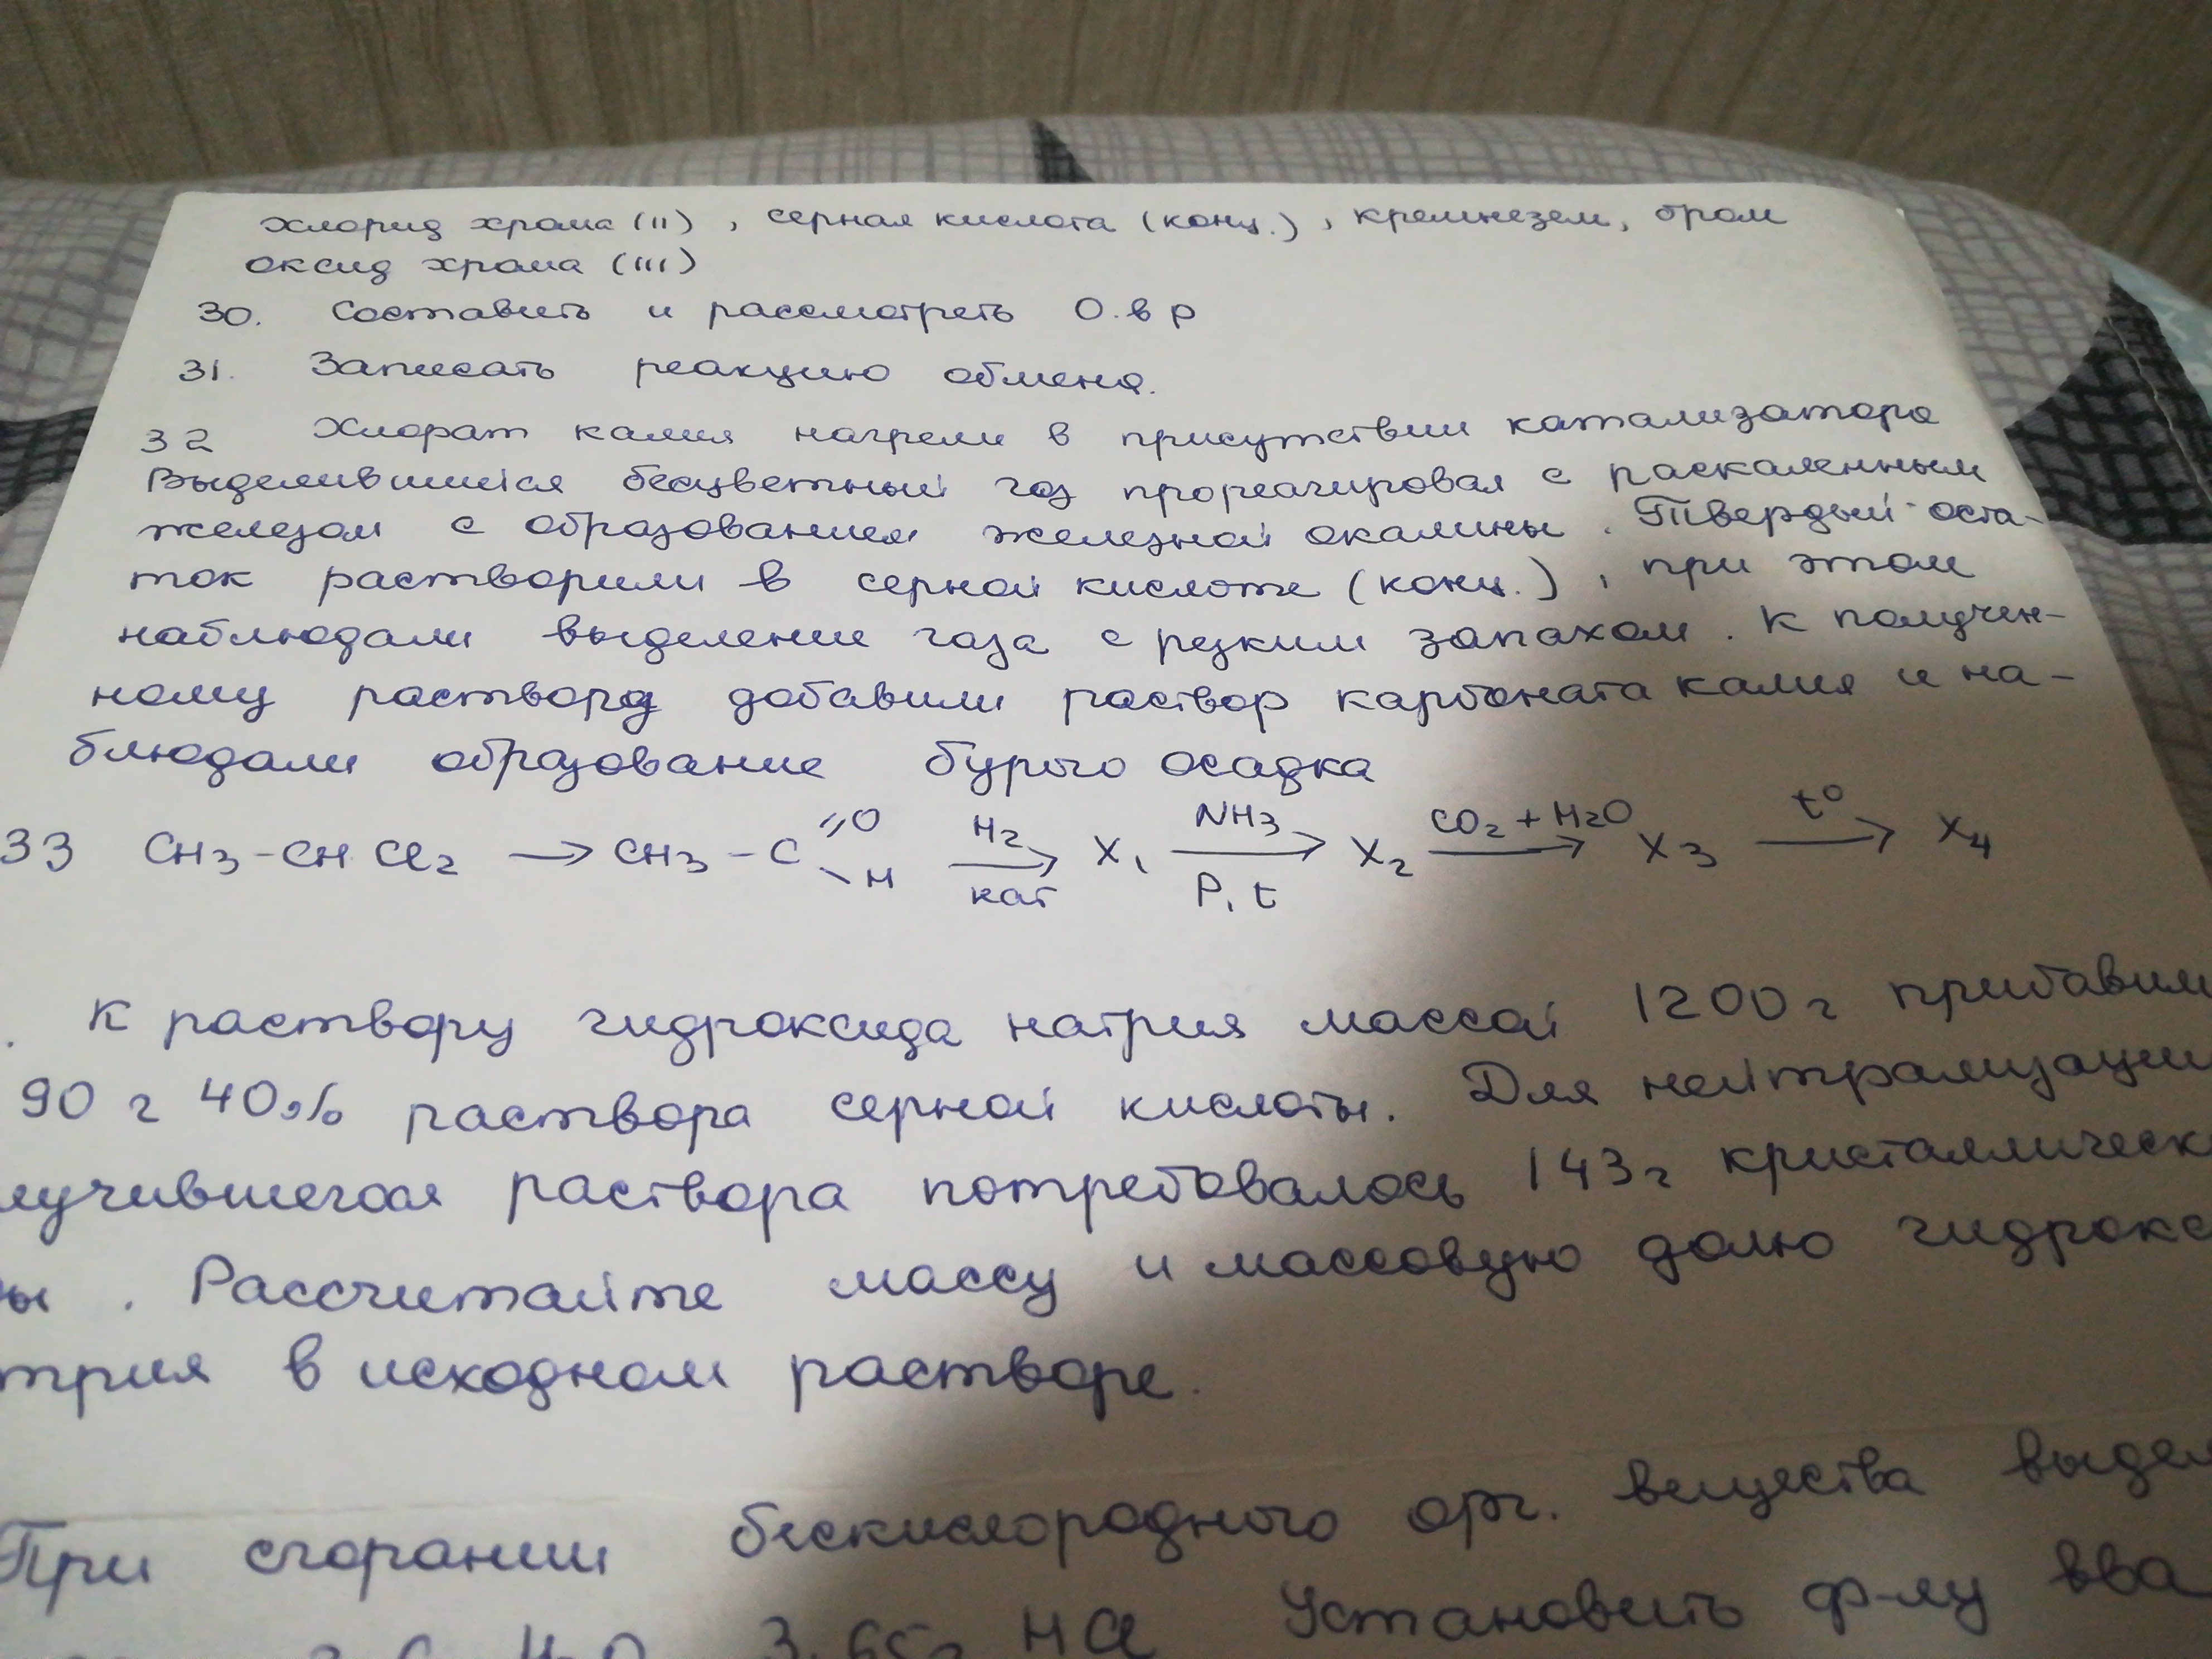 хлорид хрома (II), серная кислота (конц.), кремнезем, бром
оксид хрома (III)
30. Составить и рассмотреть О.в р
31. Записать реакцию обмена.
32 Хлорат калия нагрели в присутствии катализатора
Выделившийся бесцветный газ прореагировал с раскаленным
железом с образованием железной окалины. Твердый оста-
ток растворили в серной кислоте (конц.), при этом
наблюдали выделение газа с резким запахом. К получен-
ному раствору добавили раствор карбоната калия и на-
блюдали образование бурого осадка
33 CH3-CHCl2 → CH3-C=O-H H2 кат → X1 NH3 P, t → X2 CO2+H2O → X3 t° → X4
. К раствору гидроксида натрия массой 1200 г прибавил
90 г 40% раствора серной кислоты. Для нейтрализации
лучившегося раствора потребовалось 143 г кристаллическ
ы. Рассчитайте массу и массовую долю гидрокс
трия в исходном растворе.
При сгорании бескислородного орг. вещества выдел
H2O 3,65г HCl Установить ф-лу вва